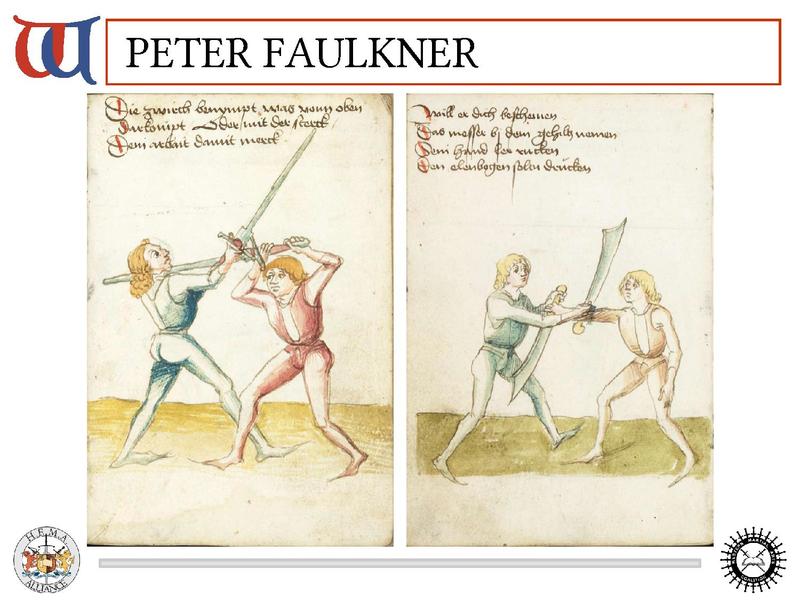 PETER FAULKNER
Die zwirch benympt was vonn oben
darkompt Oder mit der sterck
Dein arbait damit merck
Will er dich beschemen
Das messer bÿ dem gehiltz nemen
hand ler rucken
Den elenbogen soltu drucken
H.E.M.A.
ALLIANCE